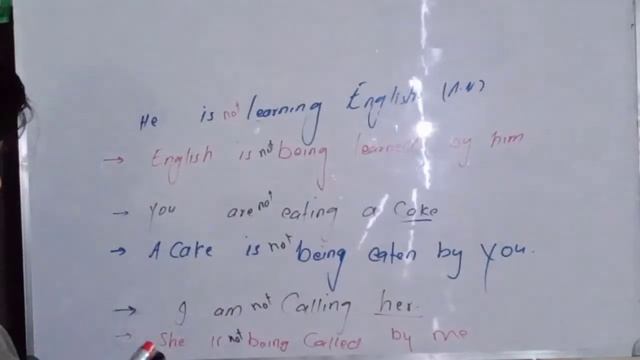 He is not learning English (A.V)
→ English is not being learned by him
→ You are not eating a Cake
→ A Cake is not being eaten by you.
→ I am not Calling her.
→ She is not being Called by me